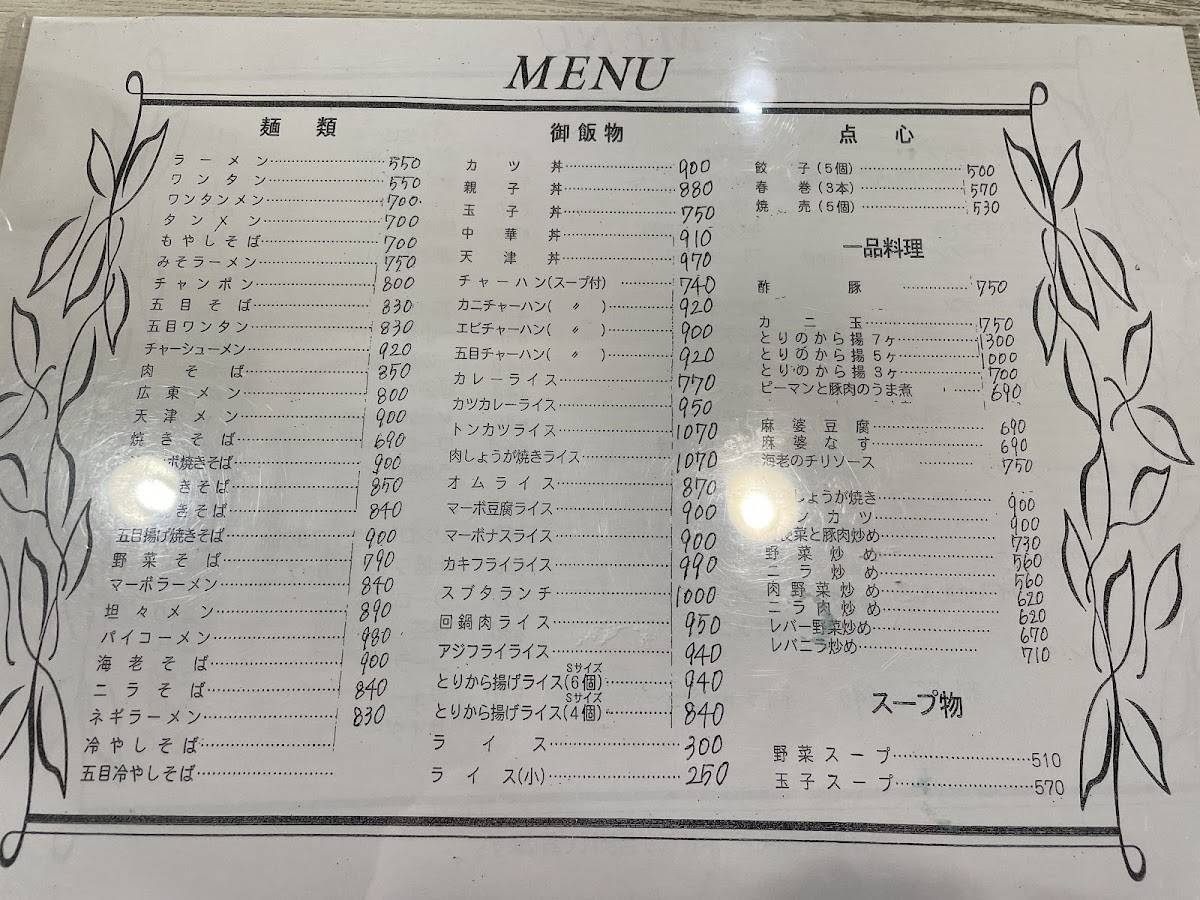 MENU
麺類
ラーメン 550
ワンタン 550
ワンタンメン 700
タンメン 700
もやしそば 700
みそラーメン 750
チャンポン 800
五目そば 830
五目ワンタン 830
チャーシューメン 920
肉そば 850
広東メン 800
天津メン 900
焼きそば 690
ボ焼きそば 900
きそば 850
きそば 840
五目揚げ焼きそば 900
野菜そば 790
マーボラーメン 840
坦々メン 890
パイコーメン 980
海老そば 900
ニラそば 840
ネギラーメン 830
冷やしそば
五目冷やしそば
御飯物
カツ丼 900
親子丼 880
玉子丼 750
中華丼 910
天津丼 970
チャーハン(スープ付) 740
カニチャーハン(〃) 920
エビチャーハン(〃) 900
五目チャーハン(〃) 920
カレーライス 770
カツカレーライス 950
トンカツライス 1070
肉しょうが焼きライス 1070
オムライス 870
マーボ豆腐ライス 900
マーボナスライス 900
カキフライライス 990
スブタランチ 1000
回鍋肉ライス 950
アジフライライス 940
とりから揚げライス(6個) Sサイズ 940
とりから揚げライス(4個) Sサイズ 840
ライス 300
ライス(小) 250
点心
餃子(5個) 500
春巻(3本) 570
焼売(5個) 530
一品料理
酢豚 750
カニ玉 750
とりのから揚7ヶ 1300
とりのから揚5ヶ 1000
とりのから揚3ヶ 700
ピーマンと豚肉のうま煮 690
麻婆豆腐 690
麻婆なす 690
海老のチリソース 750
しょうが焼き 900
ンカツ 900
菜と豚肉炒め 730
野菜炒め 560
ニラ炒め 560
肉野菜炒め 620
ニラ肉炒め 620
レバー野菜炒め 670
レバニラ炒め 710
スープ物
野菜スープ 510
玉子スープ 570